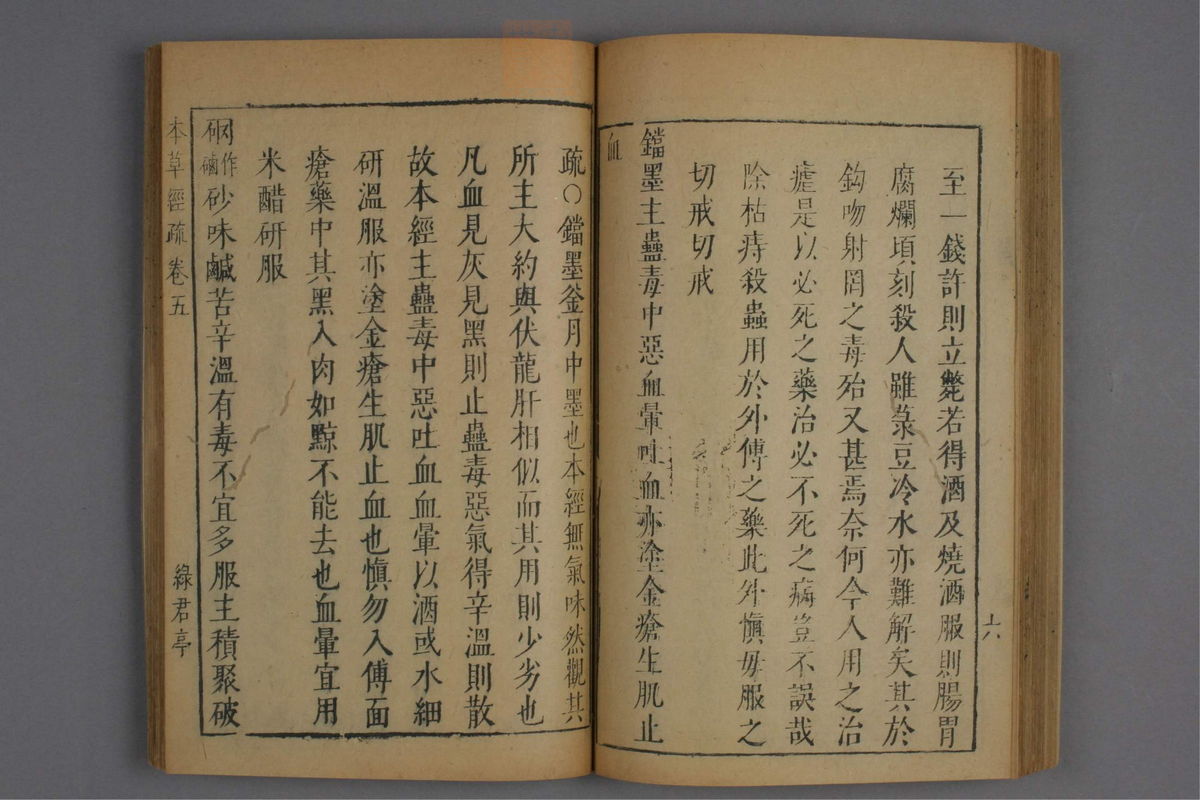 至一錢許則立斃若得酒及燒酒服則腸胃
腐爛頃刻殺人雖菉豆冷水亦難解矣其於
鈎吻射罔之毒殆又甚焉奈何今人用之治
瘧是以必死之藥治必不死之病豈不誤哉
除枯痔殺蟲用於外傅之藥此外慎毋服之
切戒切戒
鐺墨主蠱毒中惡血暈吐血亦塗金瘡生肌止
血
六
疏○鐺墨釜月中墨也本經無氣味然觀其
所主大約與伏龍肝相似而其用則少劣也
凡血見灰見黑則止蠱毒惡氣得辛溫則散
故本經主蠱毒中惡吐血血暈以酒或水細
研溫服亦塗金瘡生肌止血也慎勿入傅面
瘡藥中其黑入肉如黥不能去也血暈宜用
米醋研服
作硇砂味鹹苦辛溫有毒不宜多服主積聚破
本草經疏 卷五 綠君亭